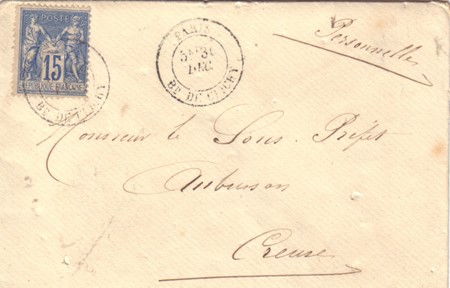 POSTE
15
REPUBLIQUE FRANCAISE
BD DE CLICHY
PARIS
31
DEC
BD DE CLICHY
Personnelle
Monsieur le Sous-Préfet
Aubusson
Creuse